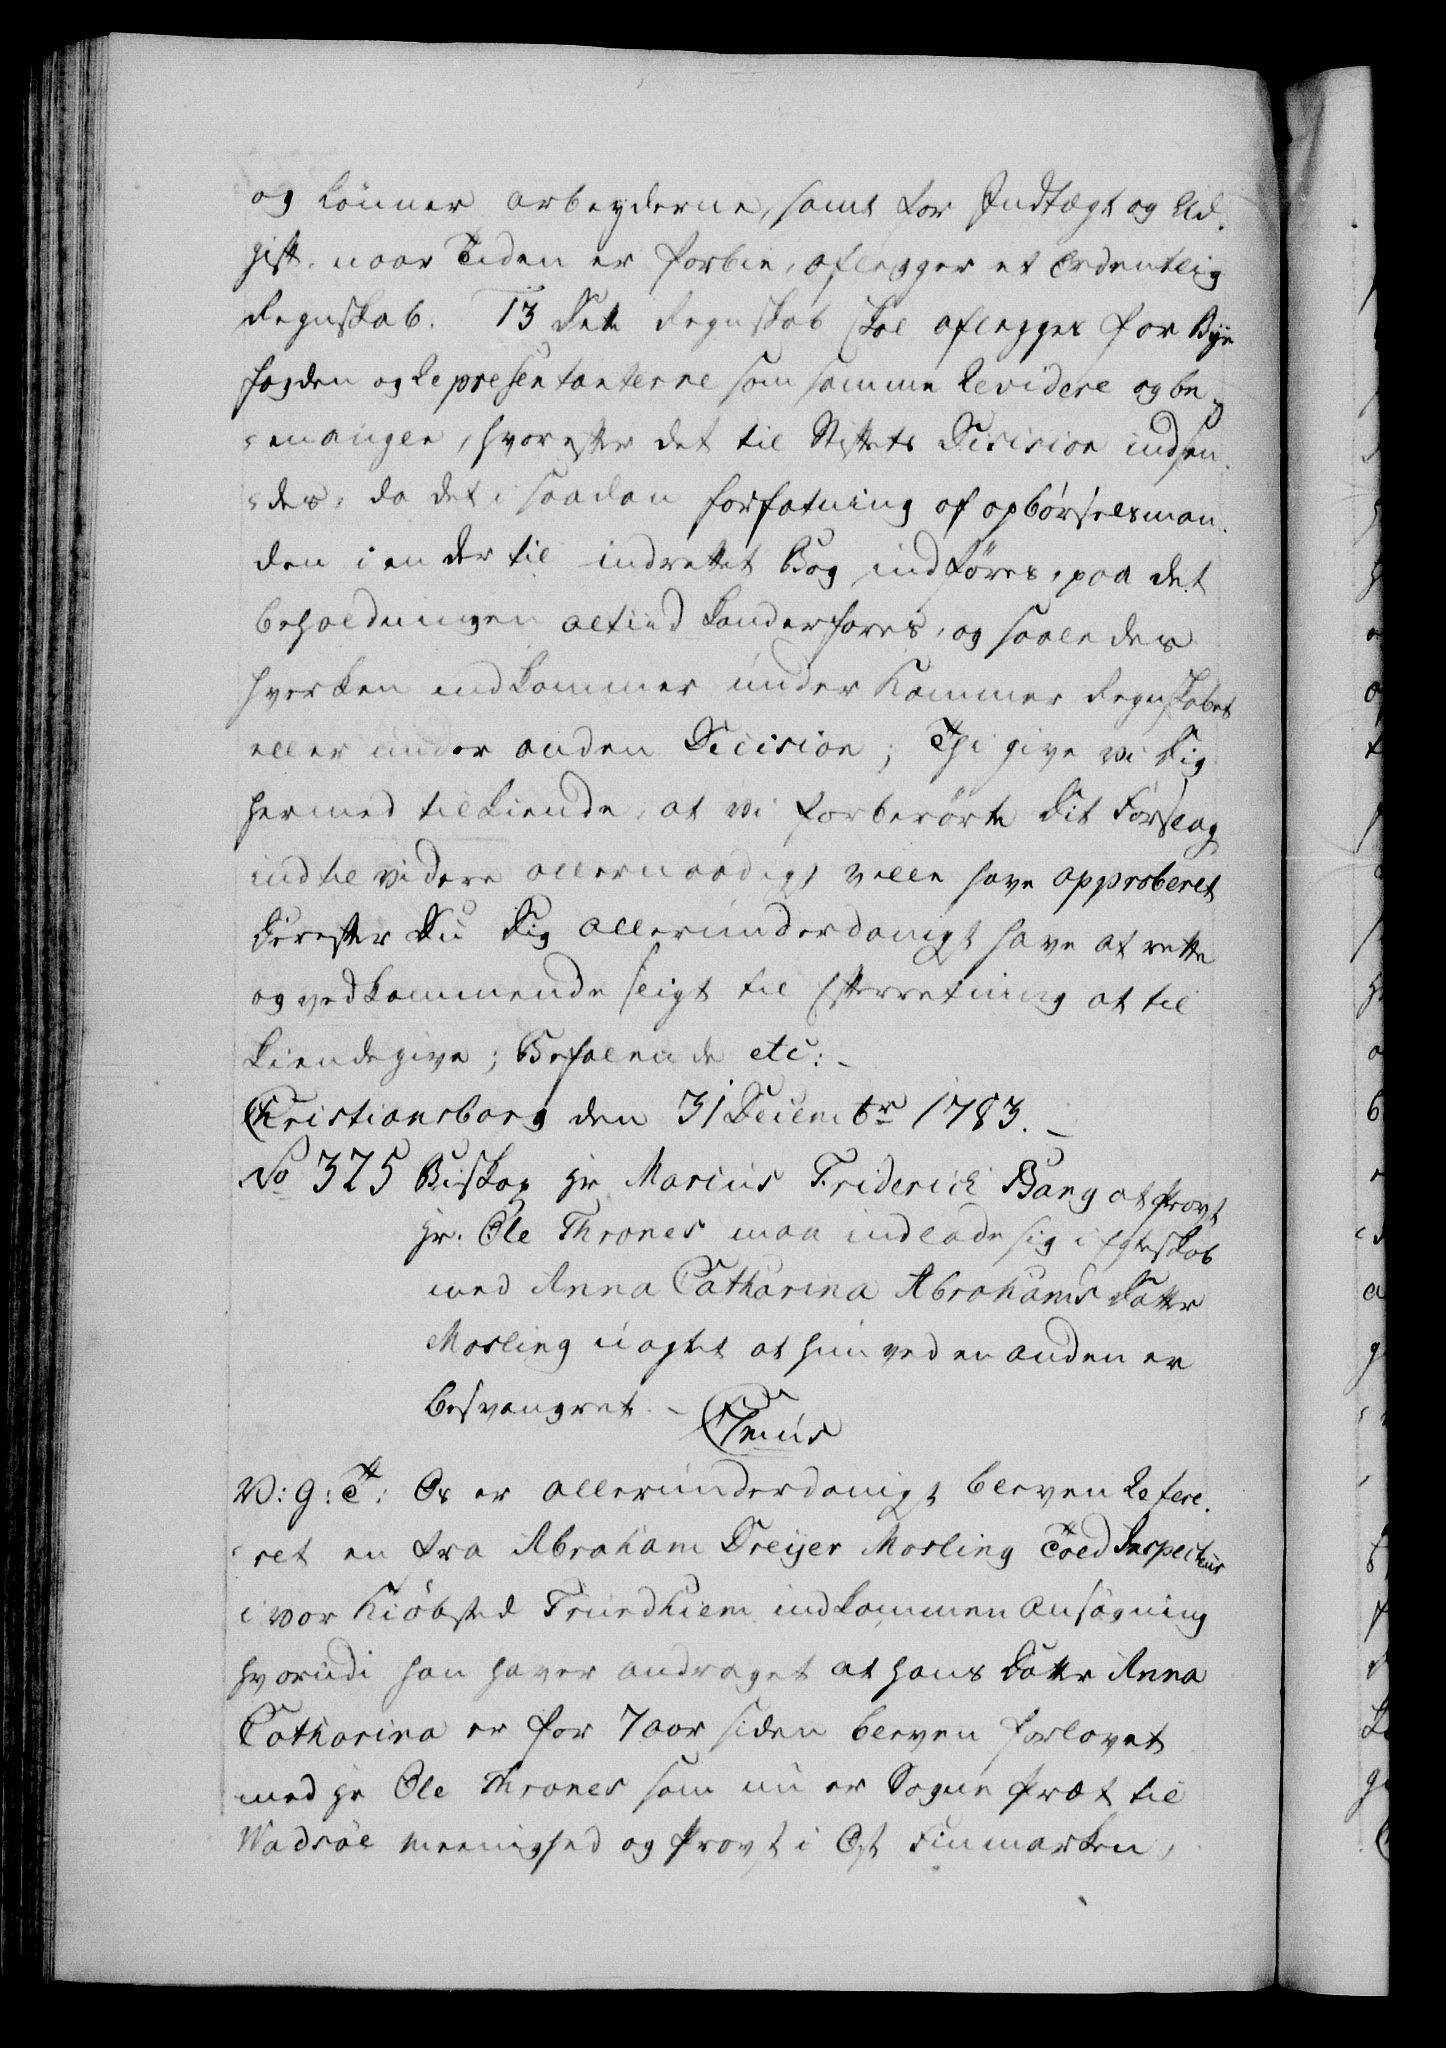 og lönner arbeyderne, samt for Indtægt og Ud-
gift, naar Tiden er forbie, aflegger et ordentlig
Regnskab. 13 Dette Regnskab skal aflegges for Bye
fogden og Repræsentanterne som samme Revidere og be-
=mangle, hvorefter det til Stiftets Decision indsen-
=des, da det i saadan forfatning af opbörselsman-
den i en der til indrettet Bog indföres, paa det
beholdningen altiid kand erfares, og saaledes
hverken indkommer under Kammer Regnskabet
eller under anden Decision; Thi give vi Dig
hermed tilkiende, at vi forberörte Dit Forslag
indtil videre allernaadigst ville have approberet
Derefter Du Dig allerunderdanigst have at rette
og vedkommende sligt til Efterretning at til
kiendegive; Befalende etc:
Christiansborg den 31 Decembr 1783.
No 325 Biskop Hr Marius Friderich Bang at Provst
Hr. Ole Thrones maa indlade sig i Egteskab
med Anna Catharina Abrahams Datter
Mosling uagtet at hun ved en anden er
besvangret.
C7mus
V: G: T: Os er allerunderdanigst bleven Refere-
=ret en fra Abraham Dreyer Mosling Told Inspecteur
i vor Kiöbsted Trundhiem indkommen ansögning
hvorudi han haver andraget at hans Datter Anna
Catharina er for 7 aar siden bleven forlovet
med Hr Ole Thrones som nu er Sogne Præst til
Wadsöe meenighed og Provst i Ost Finmarken,